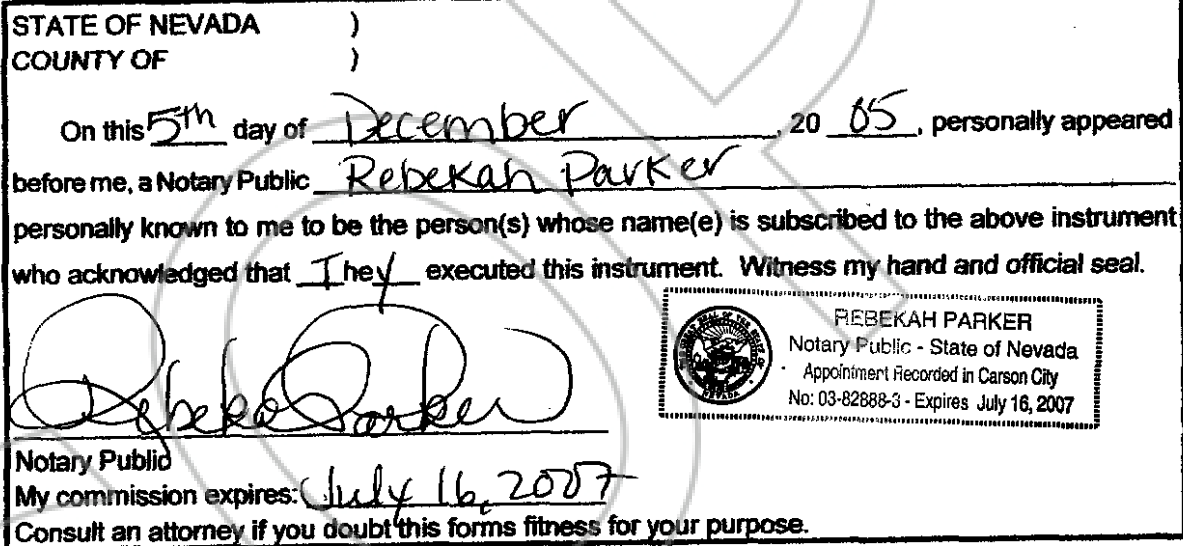 STATE OF NEVADA )
COUNTY OF )
On this 5th day of December, 20 05, personally appeared
before me, a Notary Public Rebekah Parker
personally known to me to be the person(s) whose name(e) is subscribed to the above instrument
who acknowledged that They executed this instrument. Witness my hand and official seal.
REBEKAH PARKER
Notary Public - State of Nevada
Appointment Recorded in Carson City
No: 03-82888-3 - Expires July 16, 2007
Rebekah Parker
Notary Public
My commission expires: July 16, 2007
Consult an attorney if you doubt this forms fitness for your purpose.